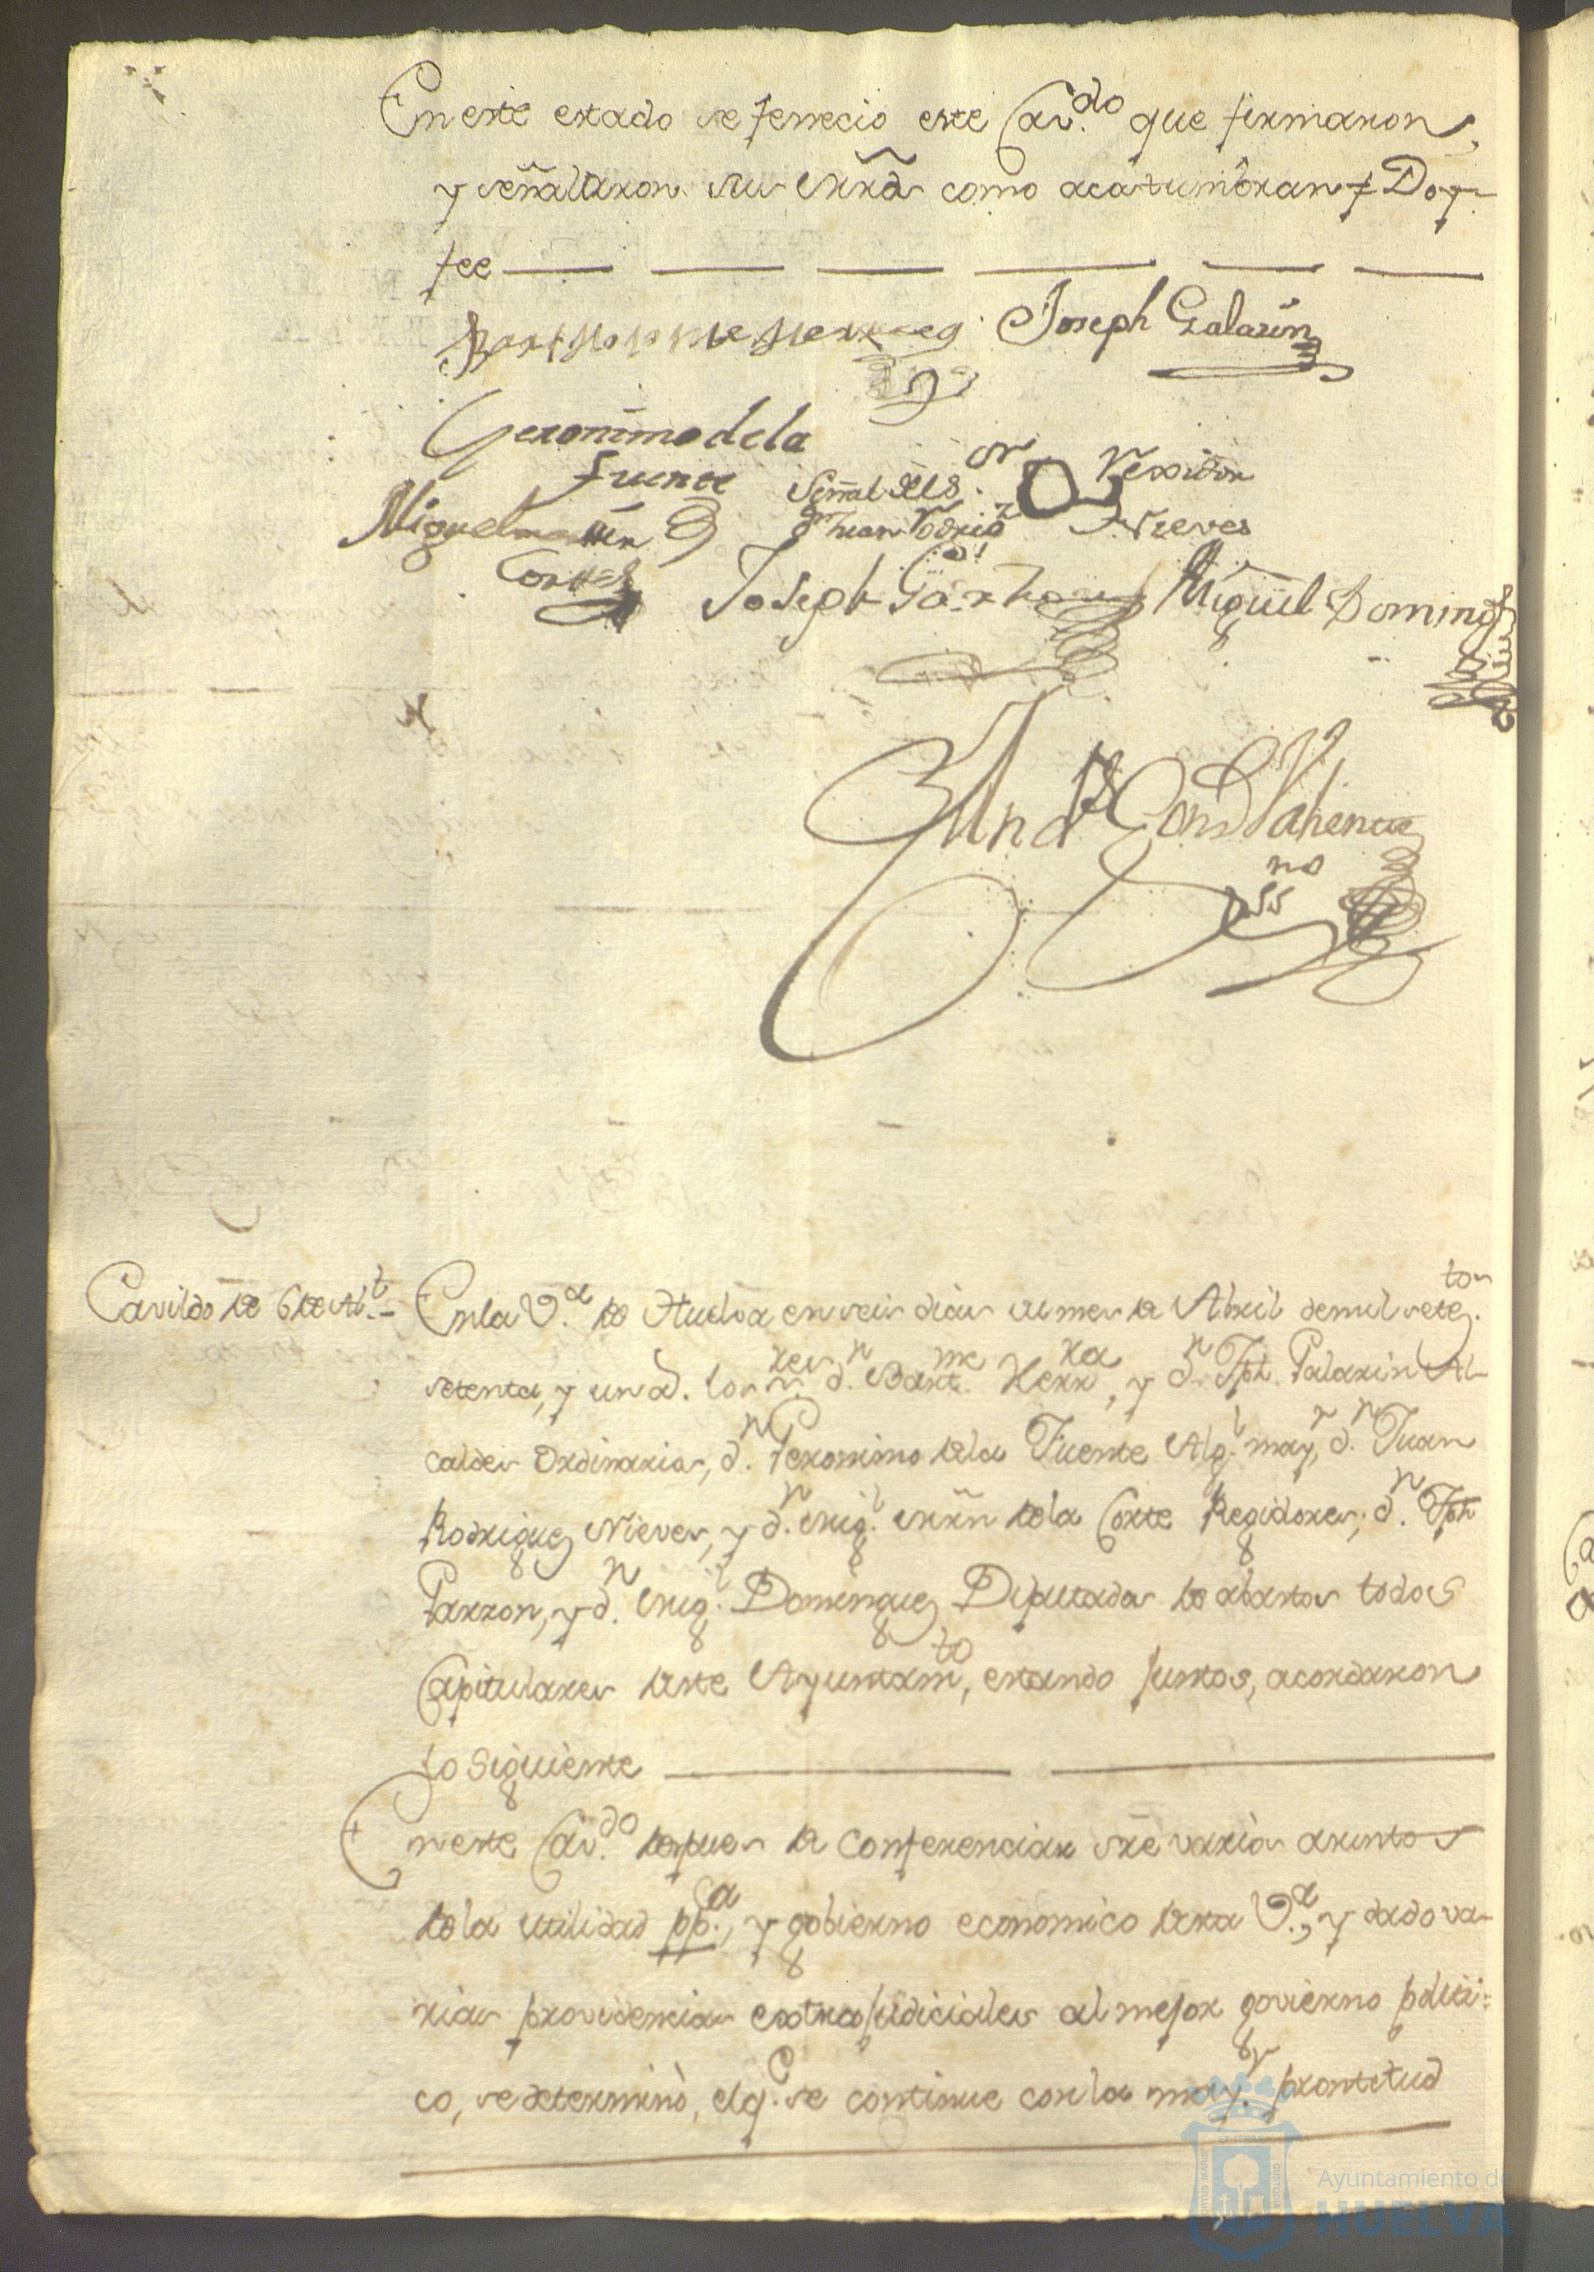 En este estado se fenecio este Cav.do que firmaron,
y señalaron sus mrds como acostumbran, Doy
fee
Bartholome Herrera Joseph Galarin
Geronimo de la
fuente
Señal del S.or Rexidor
Juan Rodrig.z Nieves
Miguel martin
Cortes
Joseph Garzon Miguel Doming.z
Cavildo de 6 de Ab.l
En la V.a de Huelva en seis dias del mes de Abril de mil setez.tos
setenta, y un a. los s.res d.n Bart.me Herr.ra, y d.n Jph. Galarin Al-
caldes Ordinarios, d.n Geronimo de la Fuente Alg.l may.r, d.n Juan
Rodriguez Nieves, y d.n Mig.l Mrn de la Corte Regidores; d.n Jph
Garzon, y d.n Mig.l Dominguez Diputados de abastos todos
Capitulares deste Ayuntam.to, estando juntos, acordaron
lo siguiente
En este Cav.do despues de conferenciar sre varios asuntos
de la utilidad pp.ca, y gobierno economico desta V.a, y dado va-
rias providencias extrajudiciales al mejor govierno politi-
co, se determinò, el q.e se continue con la may.r prontitud
Ayuntamiento de
HUELVA